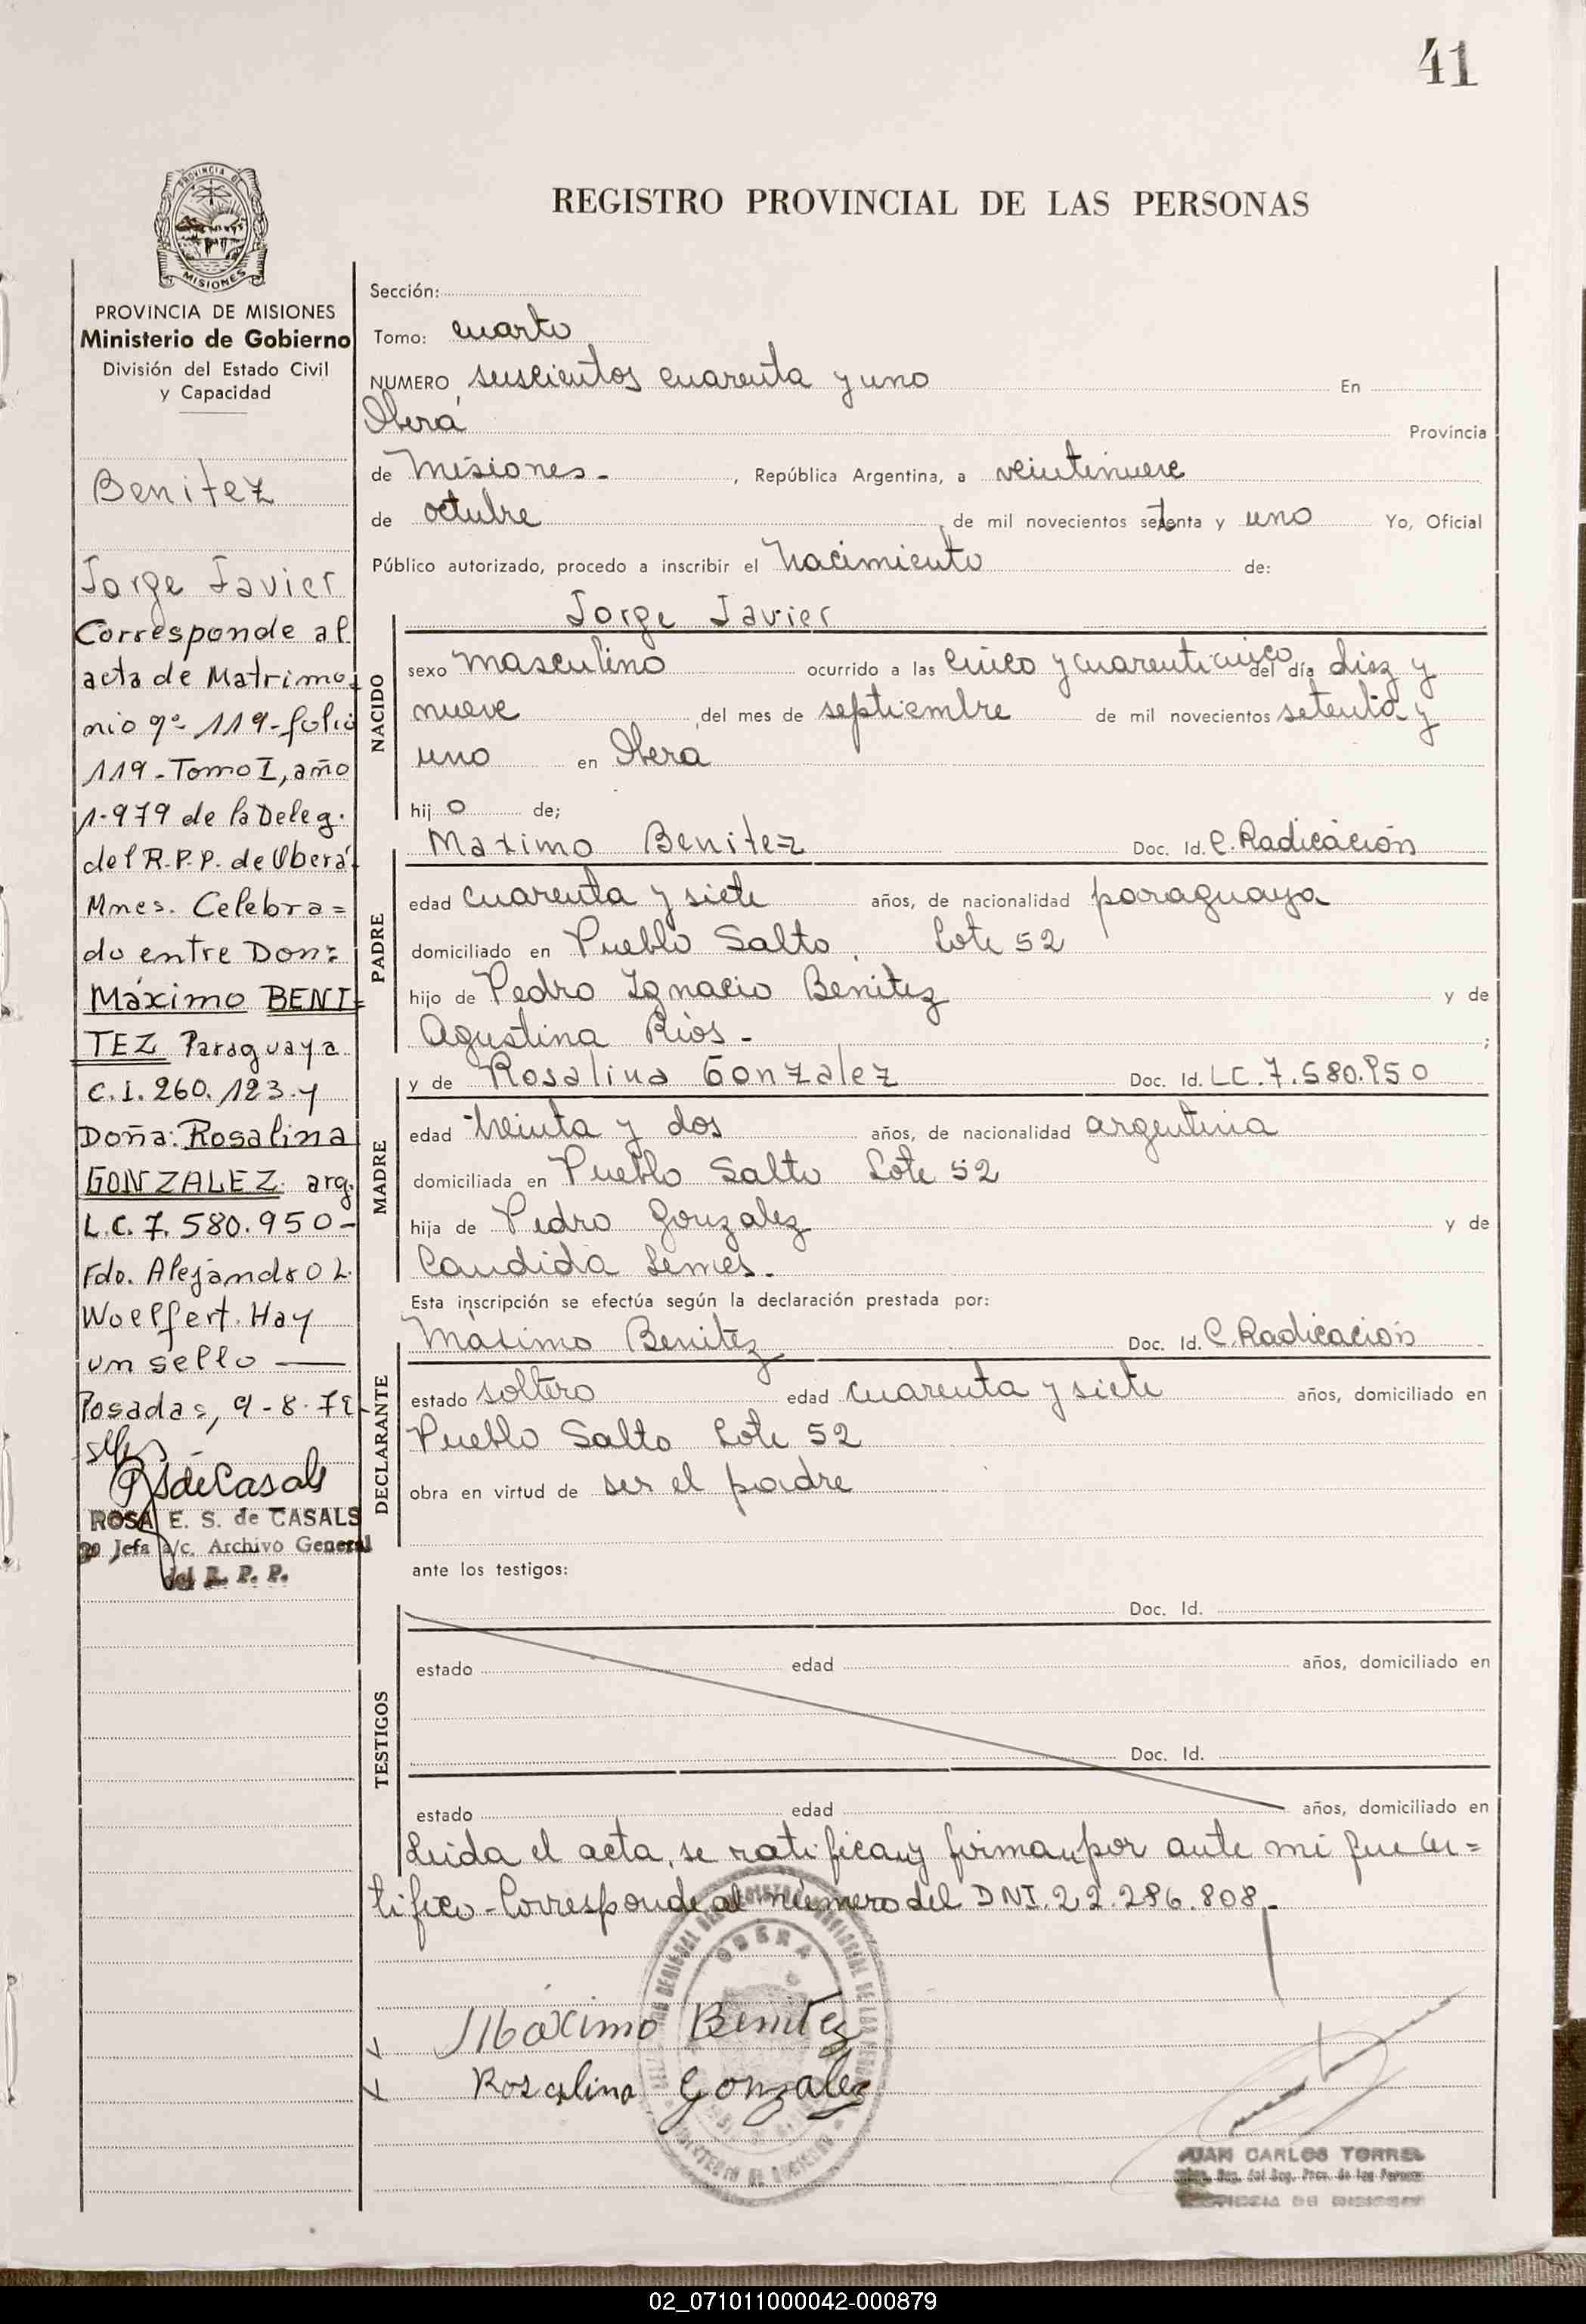 41
PROVINCIA DE
MISIONES
REGISTRO PROVINCIAL DE LAS PERSONAS
PROVINCIA DE MISIONES
Ministerio de Gobierno
División del Estado Civil
y Capacidad
Benitez
Jorge Javier
Corresponde al
acta de Matrimo
nio nº 119-folio
119-Tomo I, año
1.979 de la Deleg.
del R.P.P. de Oberá
Mnes. Celebra=
do entre Don:
Máximo BENI=
TEZ Paraguaya
C.I. 260.123.y
Doña: Rosalina
GONZALEZ. arg.
L.C. 7.580.950-
Fdo. Alejandro L.
Woelfert. Hay
un sello
Posadas, 9-8-79
RSdeCasals
ROSA E. S. de CASALS
Jefa a/c. Archivo General
del R. P. P.
Sección:
Tomo: cuarto
NUMERO suscientos cuarenta y uno En
Oberá Provincia
de Misiones- , República Argentina, a veintinueve
de octubre de mil novecientos setenta y uno Yo, Oficial
Público autorizado, procedo a inscribir el Nacimiento de:
NACIDO
Jorge Javier
sexo masculino ocurrido a las cinco y cuarenticinco del día diez y
nueve del mes de septiembre de mil novecientos setenta y
uno en Oberá
hij o de;
PADRE
Maximo Benitez Doc. Id. C. Radicación
edad cuarenta y siete años, de nacionalidad paraguaya
domiciliado en Pueblo Salto, Lote 52
hijo de Pedro Ignacio Benitez y de
Agustina Rios- ;
MADRE
y de Rosalina Gonzalez Doc. Id. LC.7.580.950
edad treinta y dos años, de nacionalidad argentina
domiciliada en Pueblo Salto Lote 52
hija de Pedro Gonzalez y de
Candida Lemes-
Esta inscripción se efectúa según la declaración prestada por:
DECLARANTE
Máximo Benitez Doc. Id. C. Radicación
estado soltero edad cuarenta y siete años, domiciliado en
Pueblo Salto Lote 52
obra en virtud de ser el padre
ante los testigos:
TESTIGOS
Doc. Id.
estado edad años, domiciliado en
Doc. Id.
estado edad años, domiciliado en
Leida el acta, se ratifican y firman por ante mi que cer=
tifico-Corresponde al número del DNI.22.286.808-
OBERA
Máximo Benitez
Rosalina Gonzalez
JUAN CARLOS TORRES
02_071011000042-000879